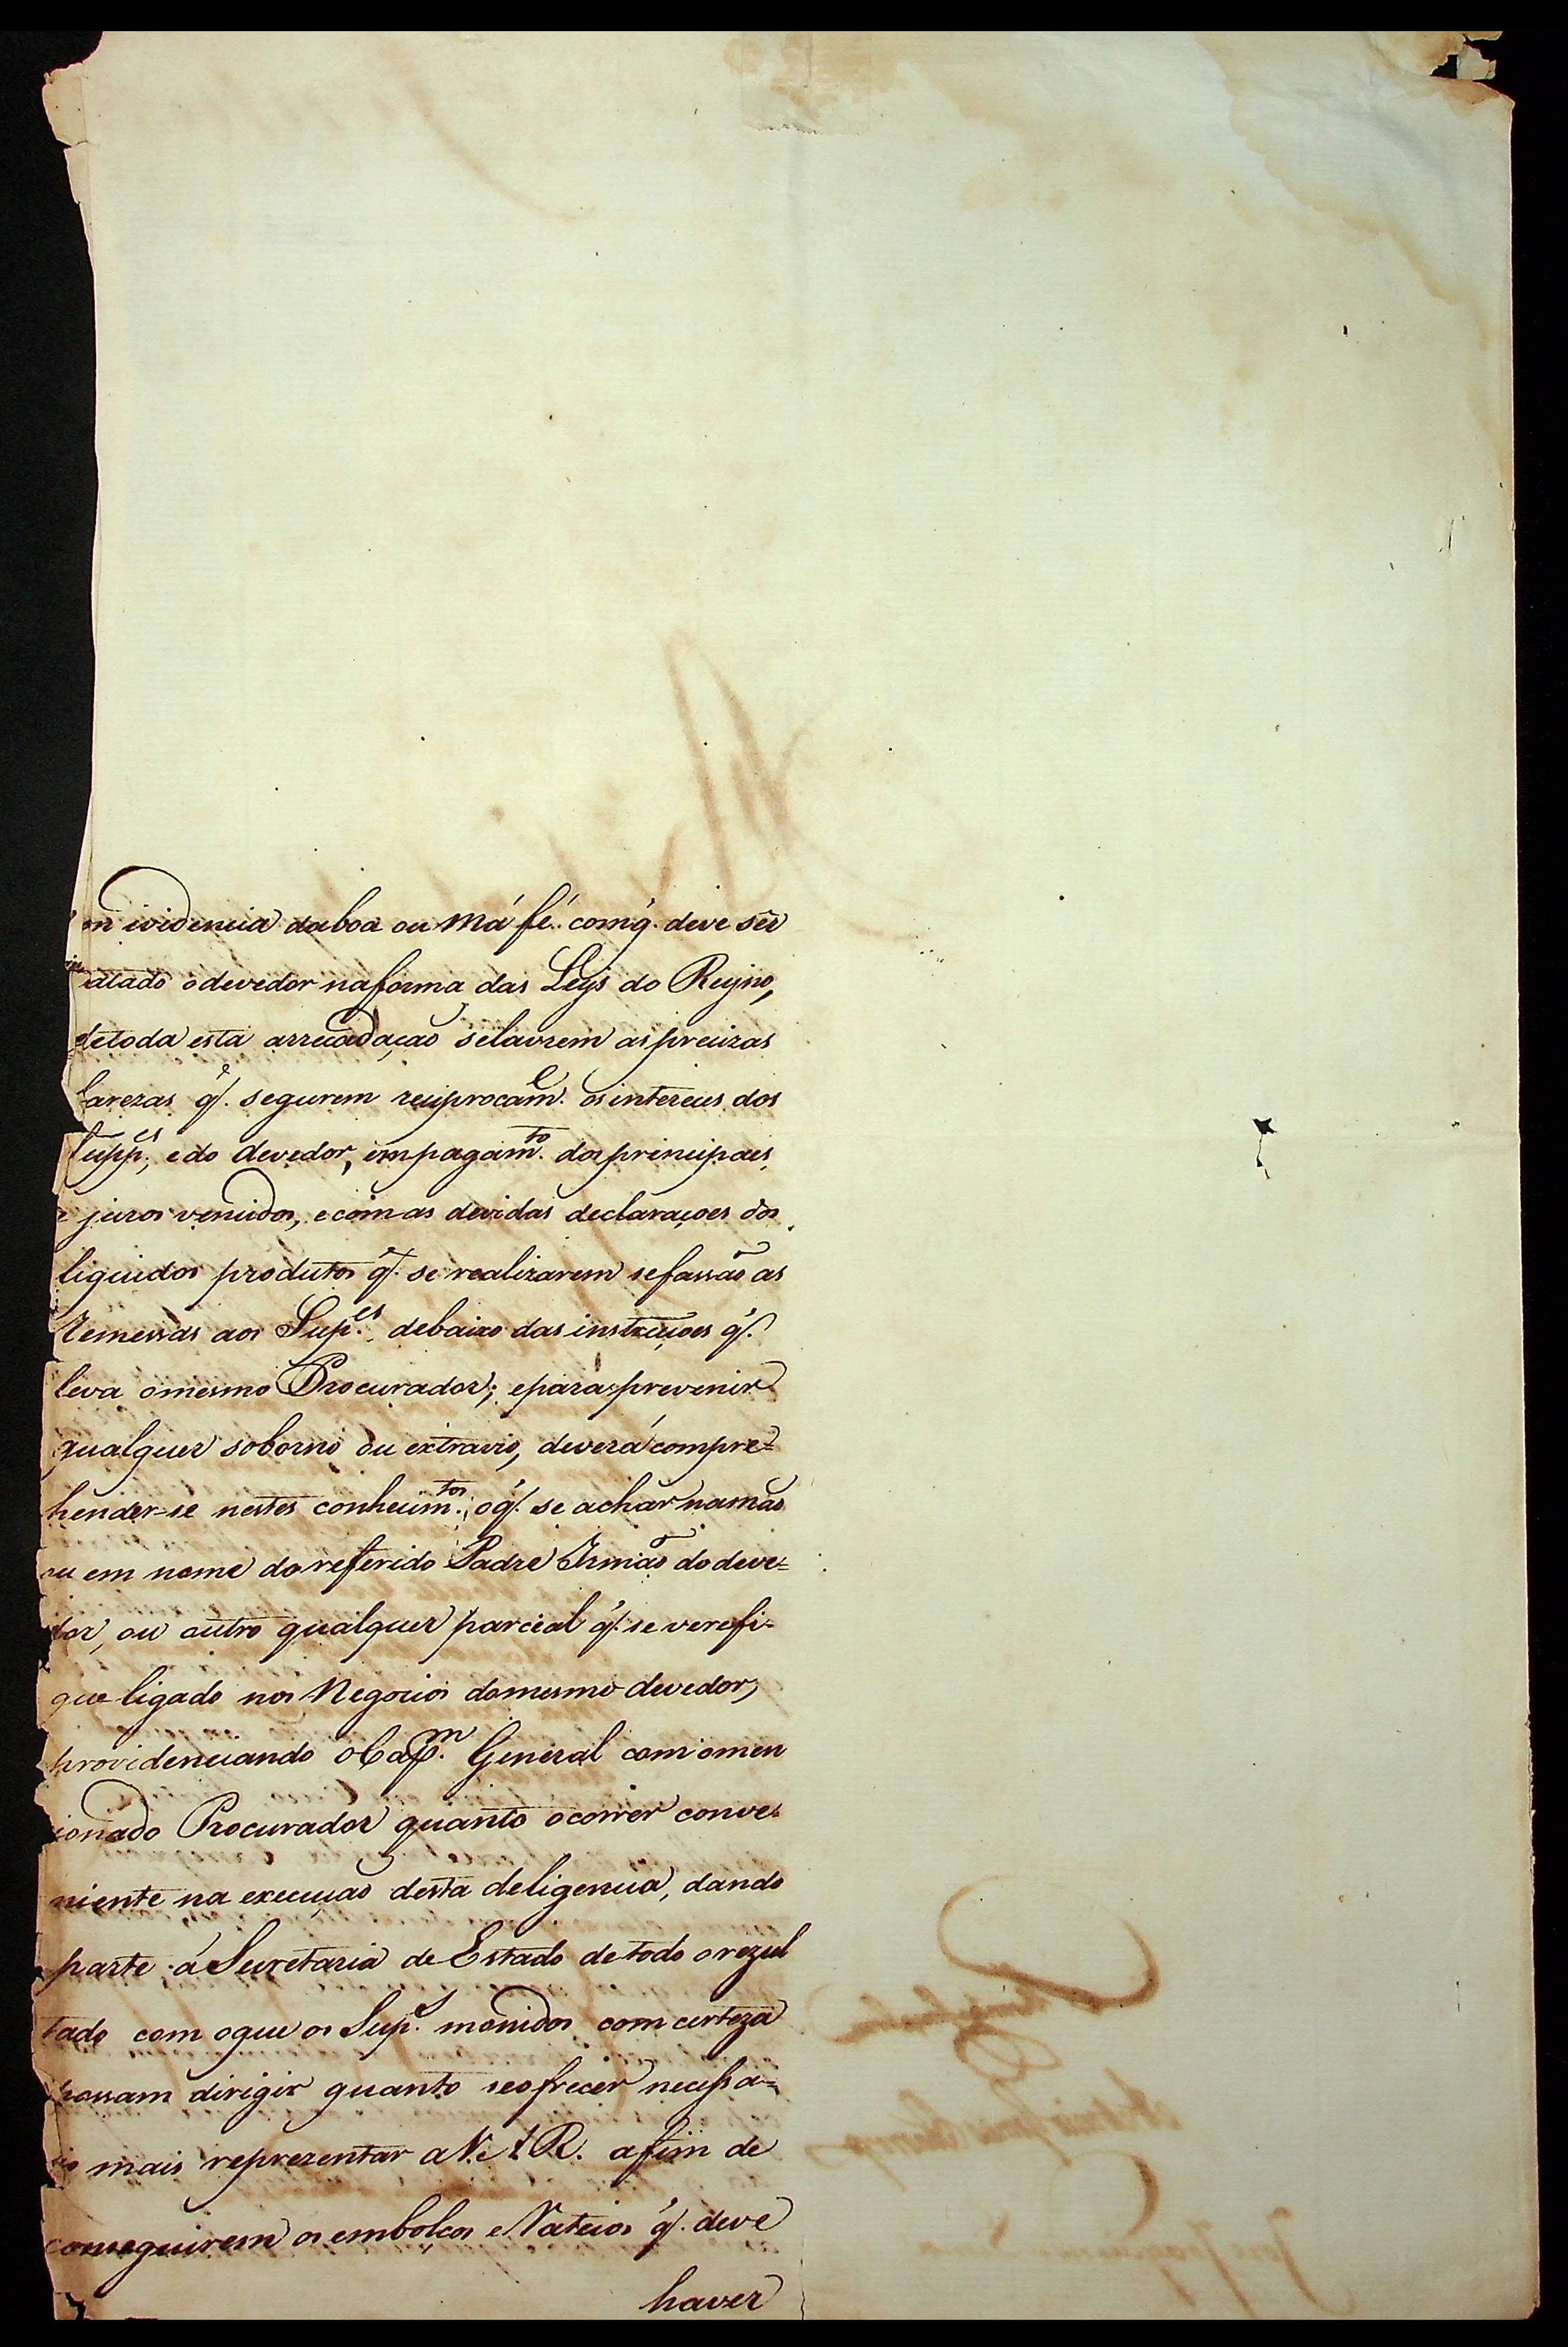 em ividencia da boa ou Má fé. com q. deve sêr
tratado o devedor na forma das Leys do Reyno,
de toda esta arrecadação se lavrem as precizas
larezas q̃. segurem reciprocam.e os interéces dos
Supp.es, e do devedor, em pagam.to dos principaes,
e juros vencidos, e com as devidas declaraçoes dos
liquidos produtos q̃. se realizarem se fassaõ as
Remessas aos Sup.es, debaixo das instruçoes q̃.
leva o mesmo Procurador; e para prevenir
qualquer soborno ou extravio, deverá compre=
hender-se nestes conhecim.tos, o q̃. se achar na maõ
ou em nome do referido Padre Irmaõ do deve=
dor, ou outro qualquer parcial q̃. se verefi=
que ligado nos Negocios do mesmo devedor,
providenciando o Cap.m General com o men
cionado Procurador quanto ocorrer conve=
niente na execuçaõ desta deligencia, dando
parte á Secretaria de Estado de todo o rezul
tado com o que os Sup.es monidos com certeza
possam dirigir quanto se ofrecer necessa=
rio mais reprezentar a V. A. R. afim de
conseguirem os embolços e Rateios q̃. deve
haver